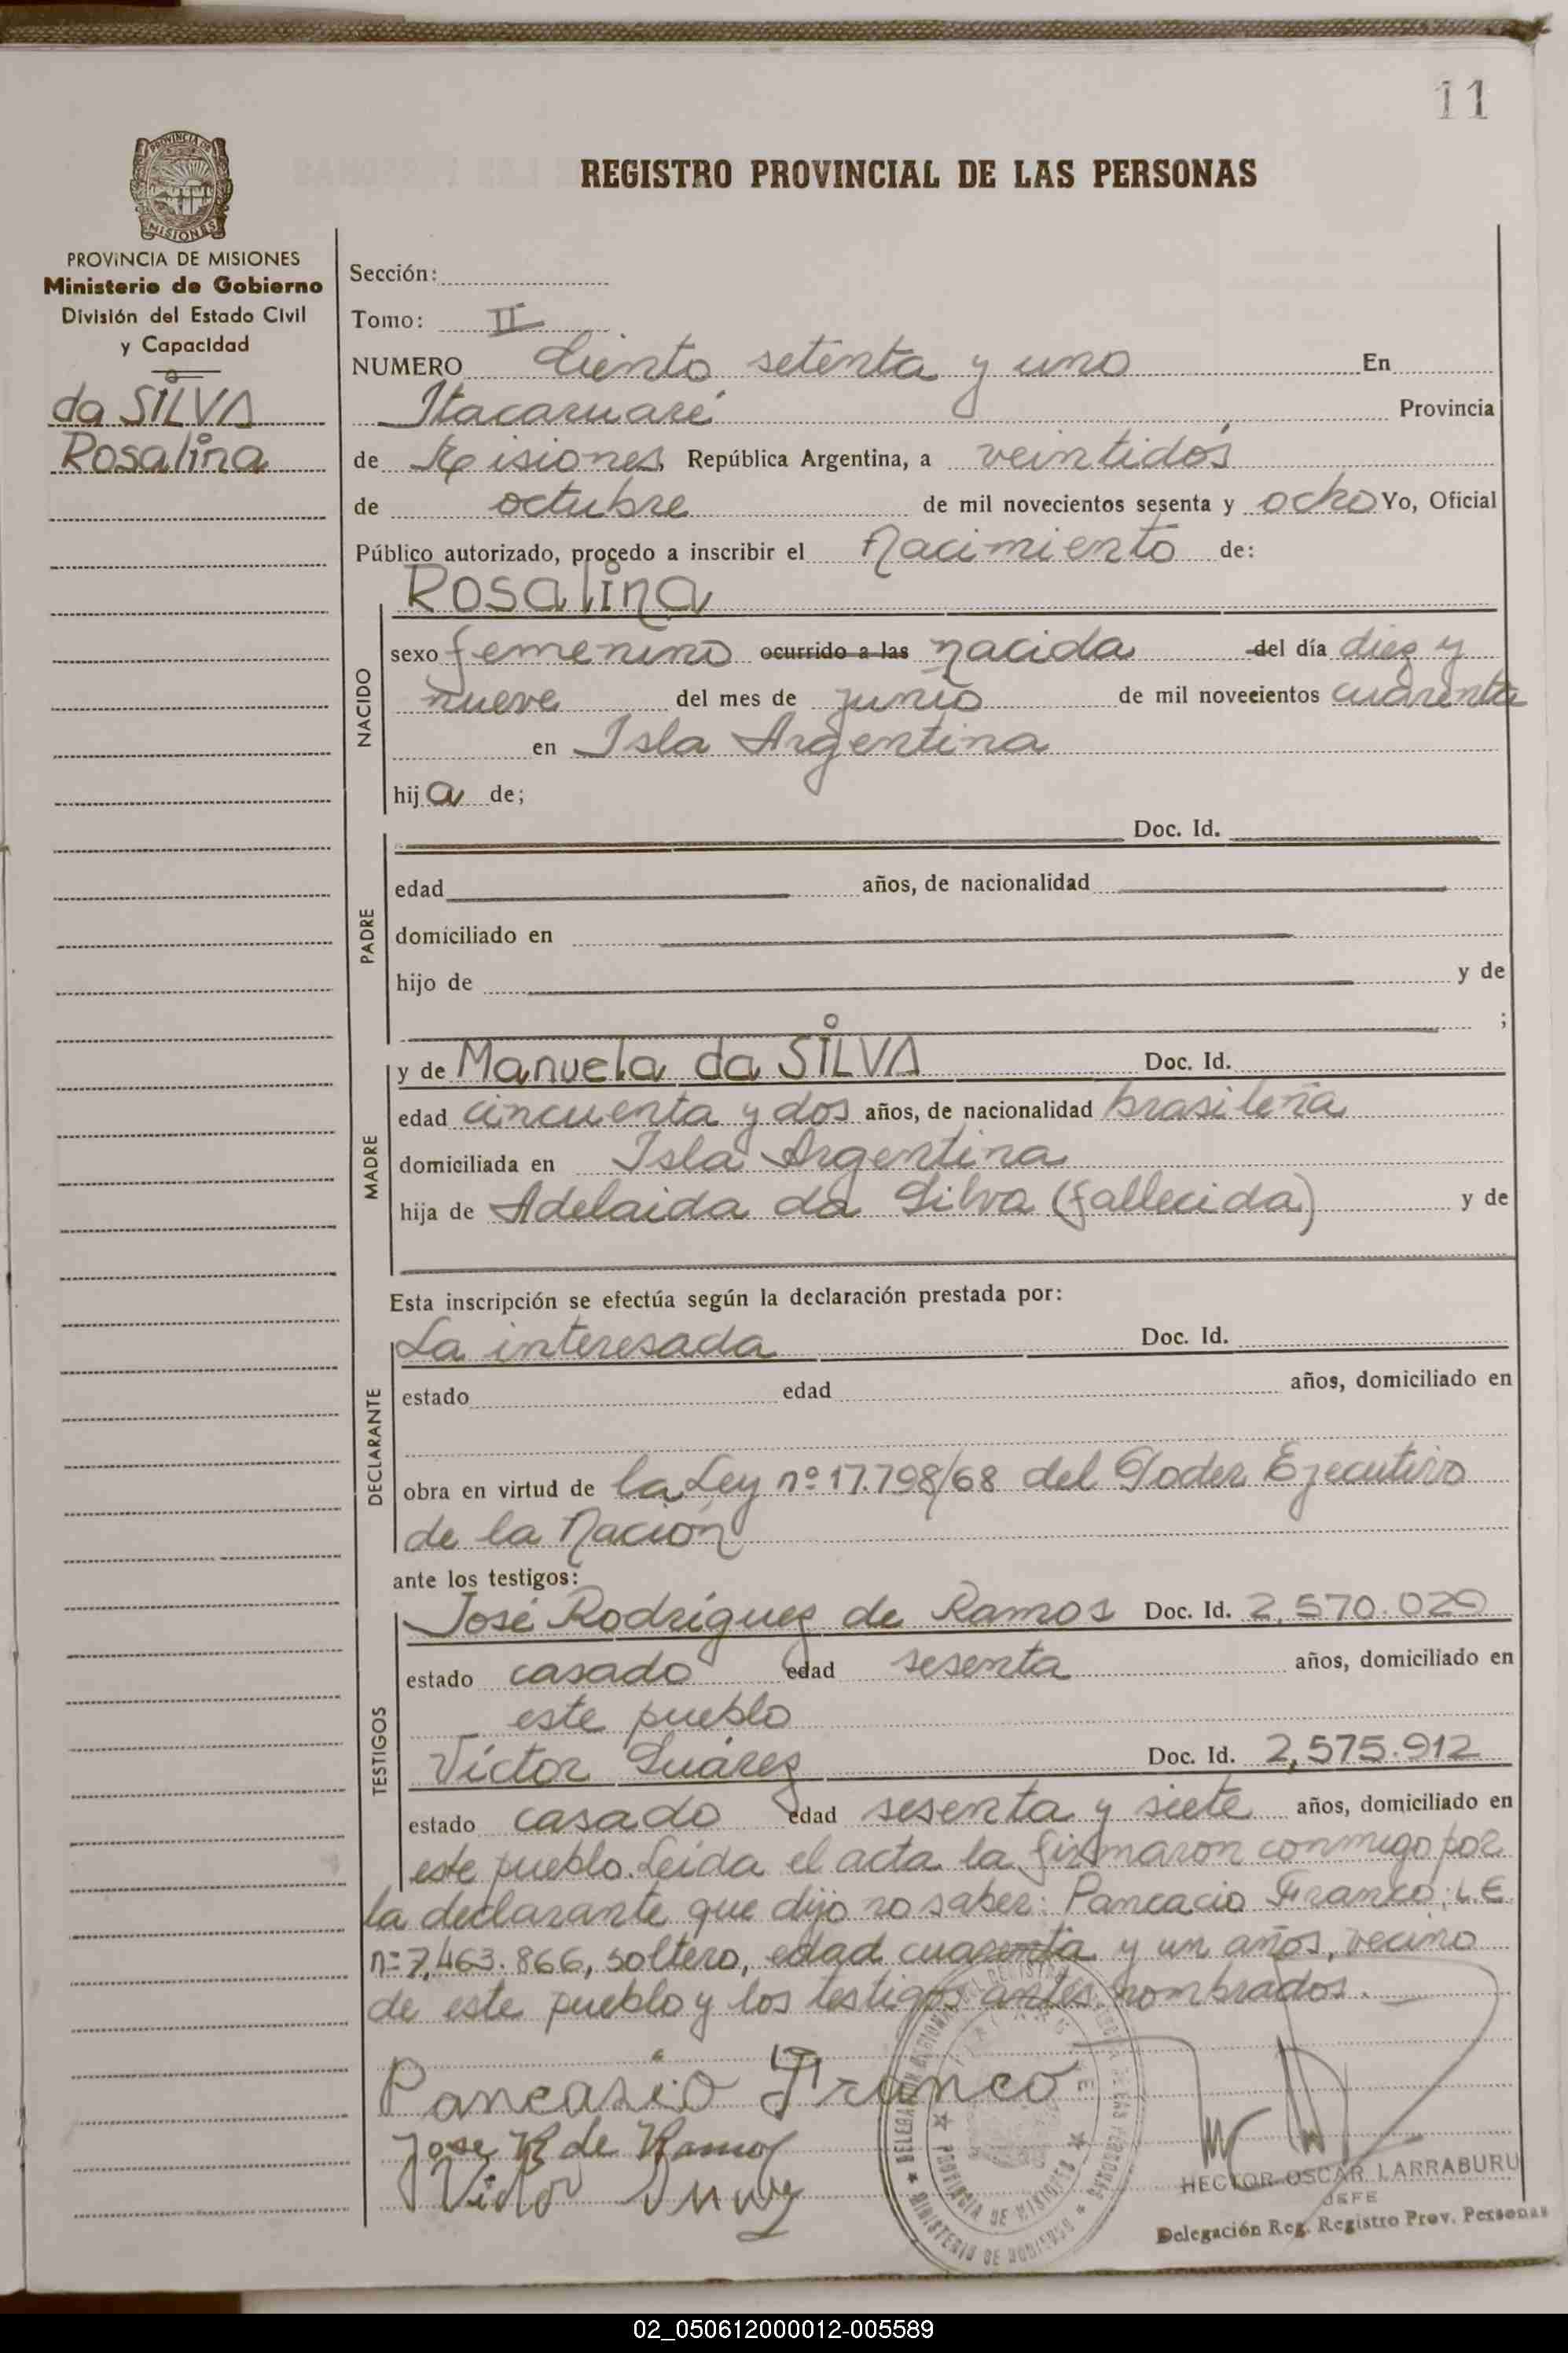 11
PROVINCIA DE
MISIONES
REGISTRO PROVINCIAL DE LAS PERSONAS
PROVINCIA DE MISIONES
Ministerio de Gobierno
División del Estado Civil
y Capacidad
da SILVA
Rosalina
Sección:
Tomo: II
NUMERO Ciento setenta y uno En
Itacaruaré Provincia
de Misiones República Argentina, a veintidós
de octubre de mil novecientos sesenta y ocho Yo, Oficial
Público autorizado, procedo a inscribir el Nacimiento de:
Rosalina
NACIDO
sexo femenino ocurrido a las nacida del día diez y
nueve del mes de junio de mil novecientos cuarenta
en Isla Argentina
hija de;
PADRE
Doc. Id.
edad años, de nacionalidad
domiciliado en
hijo de y de
;
MADRE
y de Manuela da SILVA Doc. Id.
edad cincuenta y dos años, de nacionalidad brasileña
domiciliada en Isla Argentina
hija de Adelaida da Silva (fallecida) y de
Esta inscripción se efectúa según la declaración prestada por:
DECLARANTE
La interesada Doc. Id.
estado edad años, domiciliado en
obra en virtud de la Ley nº 17.798/68 del Poder Ejecutivo
de la Nación
ante los testigos:
TESTIGOS
José Rodríguez de Ramos Doc. Id. 2,570.029
estado casado edad sesenta años, domiciliado en
este pueblo
Víctor Suárez Doc. Id. 2,575.912
estado casado edad sesenta y siete años, domiciliado en
este pueblo. Leída el acta la firmaron conmigo por
la declarante que dijo no saber: Pancacio Franco; L.E.
nº 7,463.866, soltero, edad cuarenta y un años, vecino
de este pueblo y los testigos antes nombrados.
Pancasio Franco
Jose R de Ramos
Victor
PROVINCIA DE MISIONES
MINISTERIO DE GOBIERNO
HECTOR OSCAR LARRABURU
JEFE
Delegación Reg. Registro Prov. Personas
02_050612000012-005589